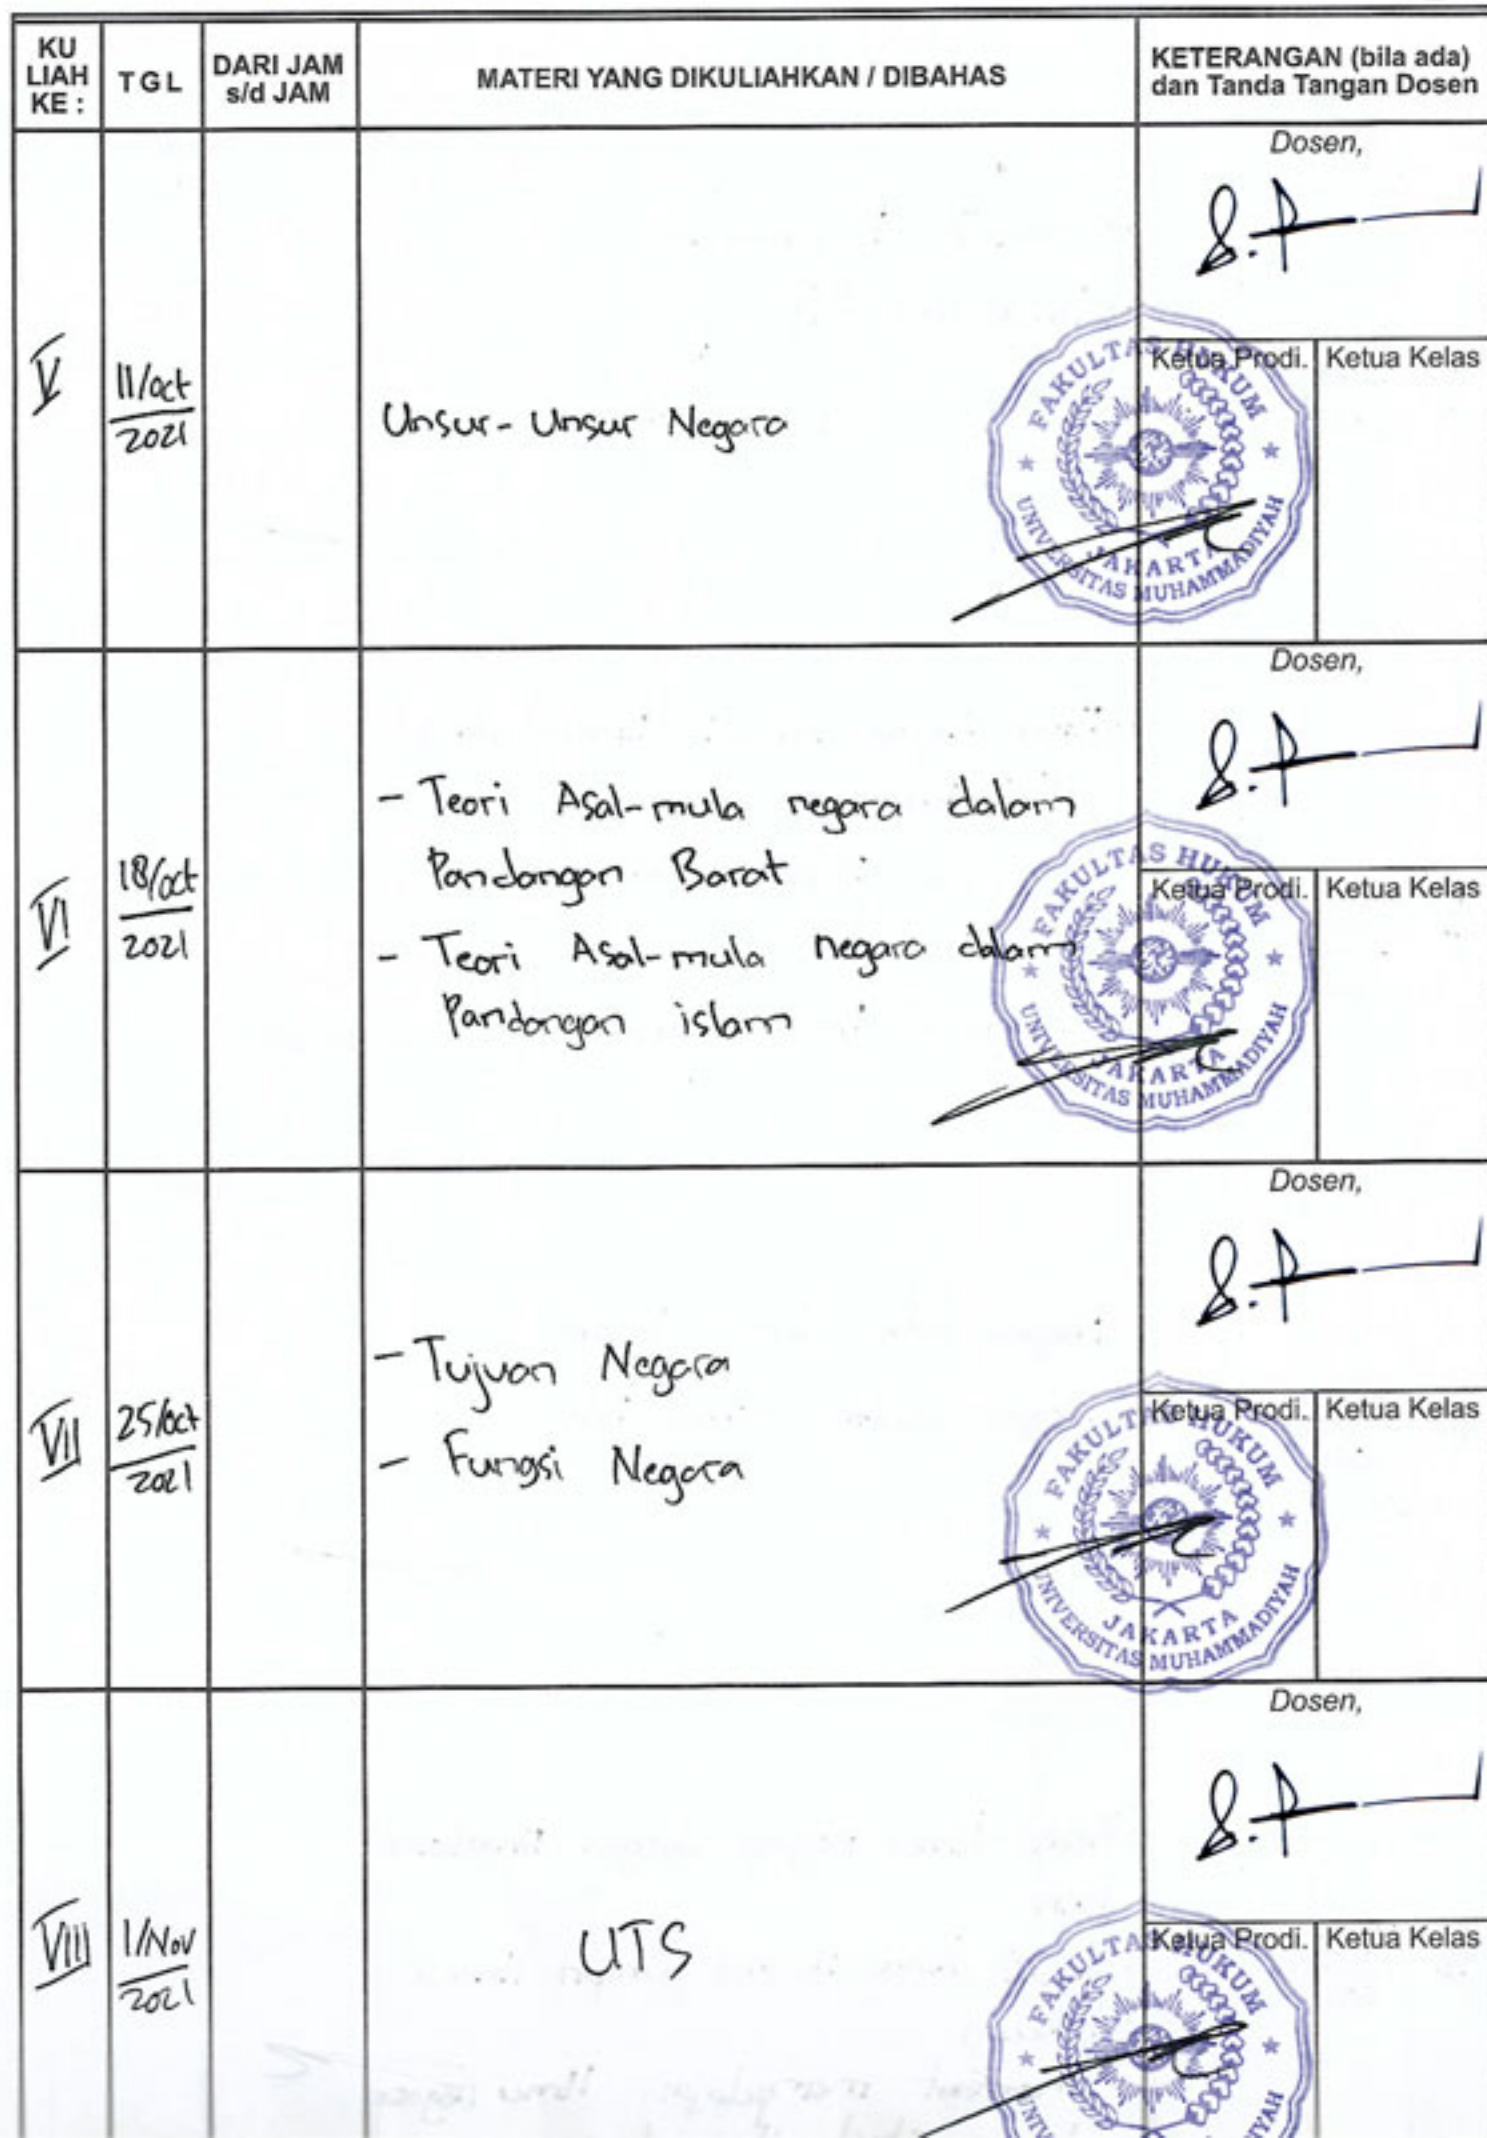 KU LIAH KE :
TGL
DARI JAM s/d JAM
MATERI YANG DIKULIAHKAN / DIBAHAS
KETERANGAN (bila ada)
dan Tanda Tangan Dosen
V
11/oct
2021
Unsur-Unsur Negara
Dosen,
Ketua Prodi.
Ketua Kelas
FAKULTAS HUKUM
UNIVERSITAS MUHAMMADIYAH
JAKARTA
VI
18/oct
2021
- Teori Asal-mula negara dalam
Pandangan Barat
- Teori Asal-mula negara dalam
Pandangan islam
Dosen,
Ketua Prodi.
Ketua Kelas
FAKULTAS HUKUM
UNIVERSITAS MUHAMMADIYAH
JAKARTA
VII
25/oct
2021
- Tujuan Negara
- Fungsi Negara
Dosen,
Ketua Prodi.
Ketua Kelas
FAKULTAS HUKUM
UNIVERSITAS MUHAMMADIYAH
JAKARTA
VIII
1/Nov
2021
UTS
Dosen,
Ketua Prodi.
Ketua Kelas
FAKULTAS HUKUM